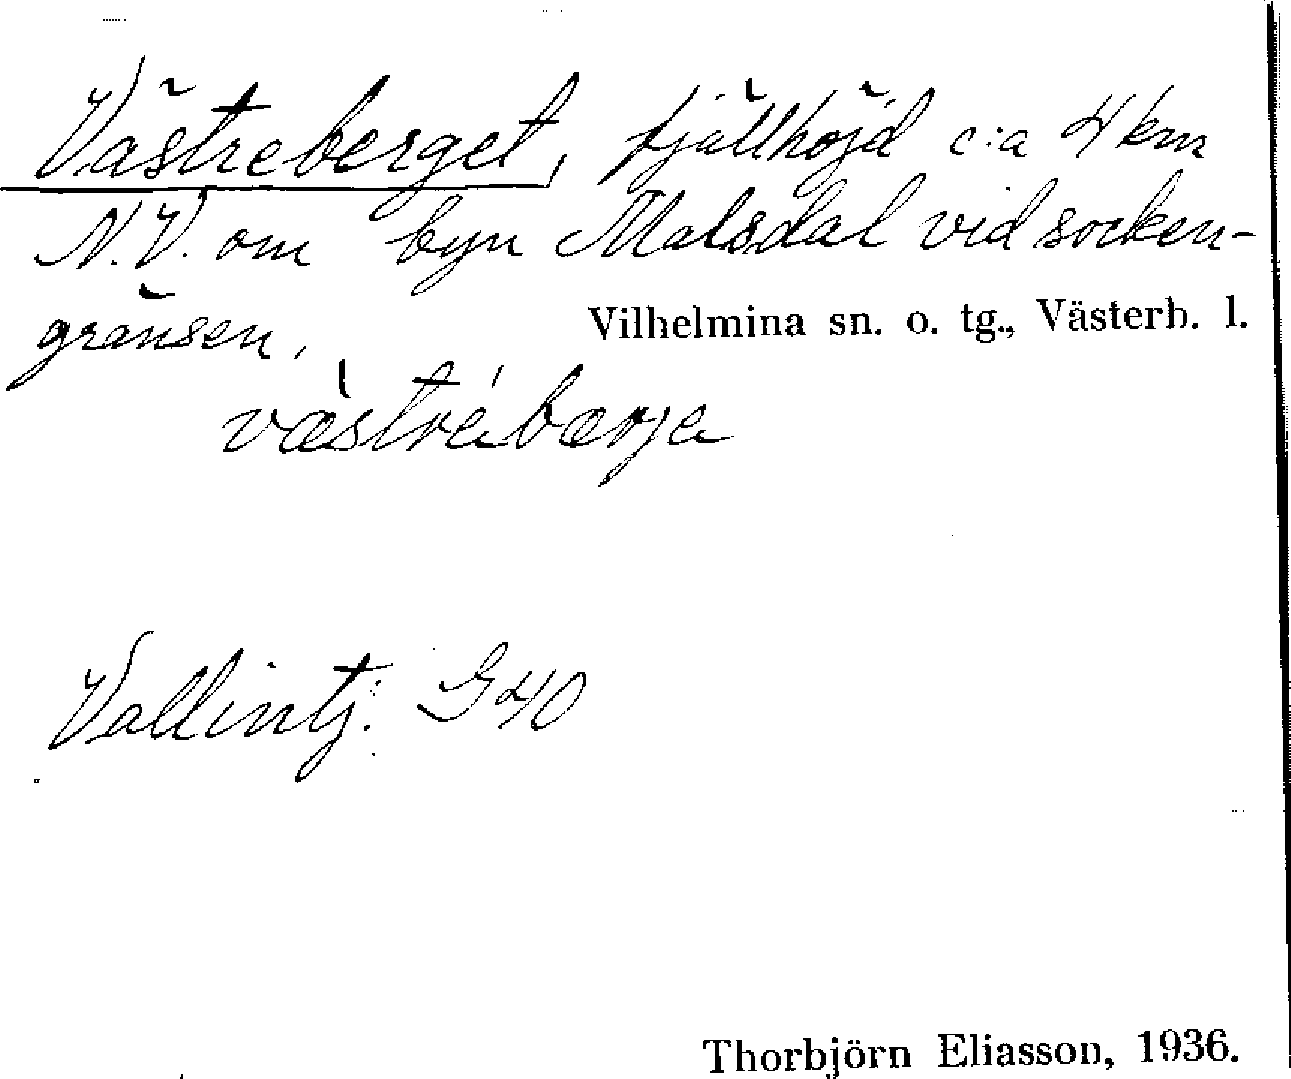 Västreberget, fjällhöjd c:a 4 km
N.V. om byn Malsdal vid socken-
gränsen.
Vilhelmina sn. o. tg., Västerb. l.
västrebærja
Vallintj: G 40
Thorbjörn Eliasson, 1936.